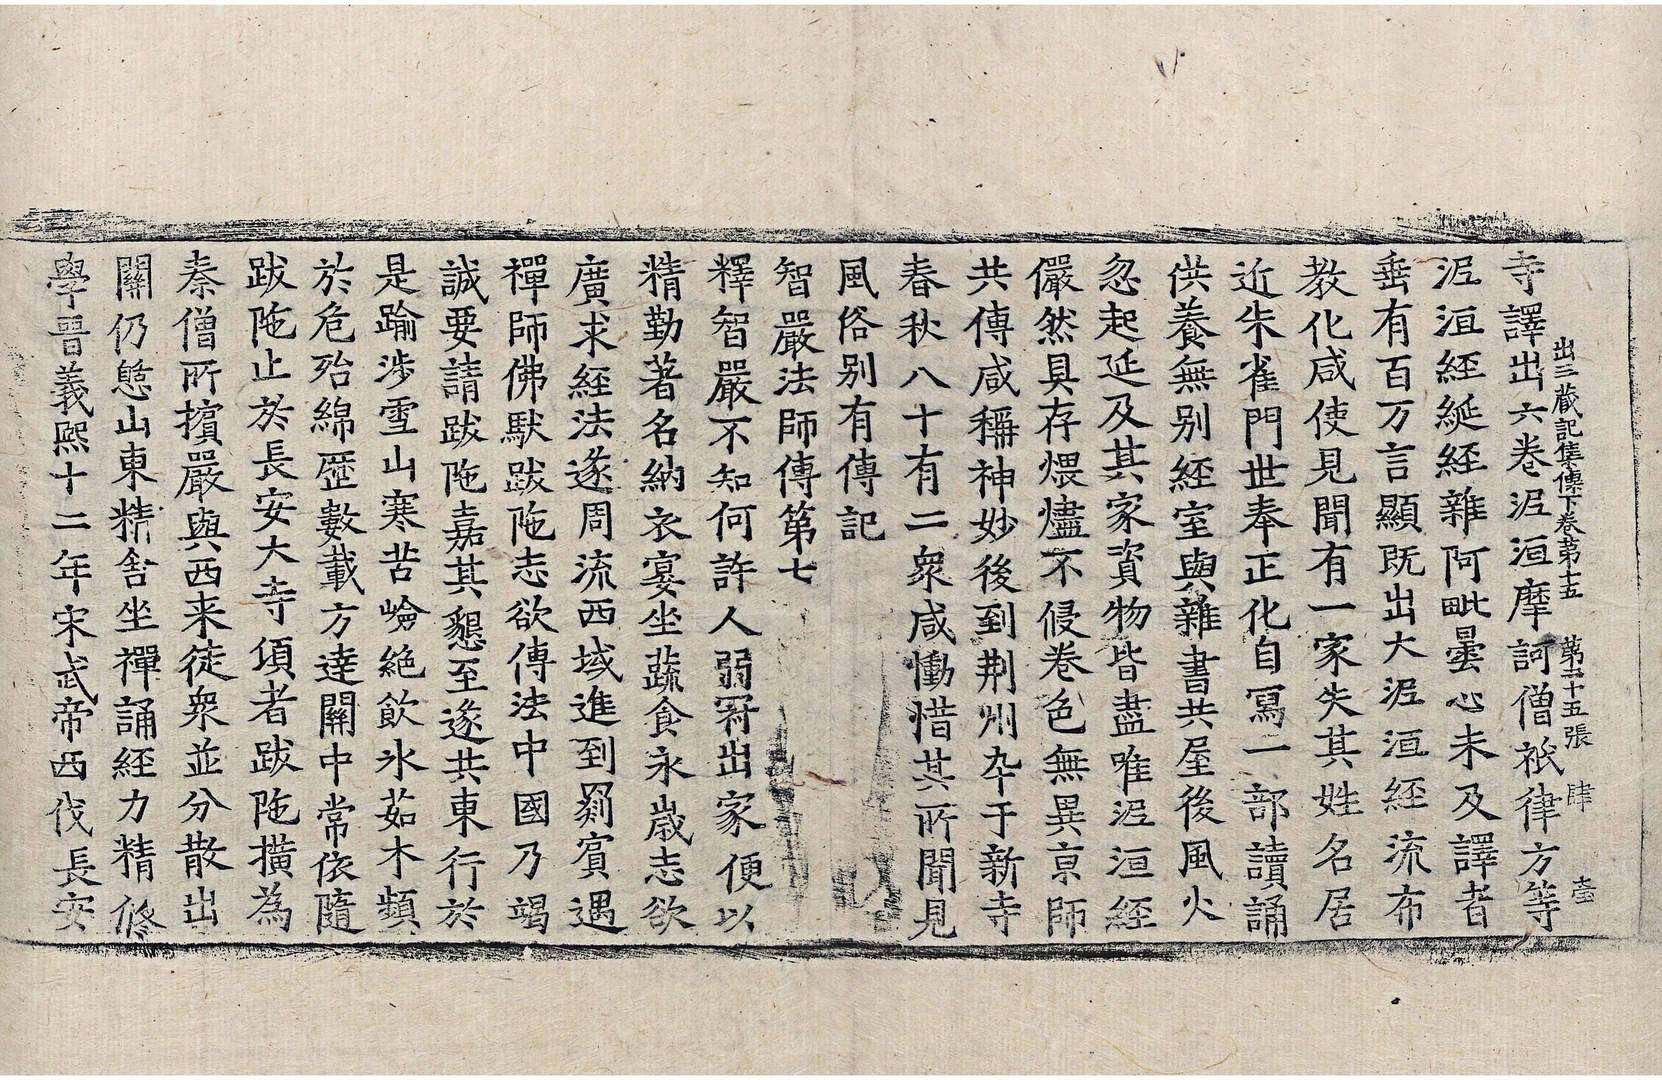 出三藏記集傳下卷第十五 第二十五張 肆 壹
寺譯出六卷泥洹摩訶僧祇律方等
泥洹經綖經雜阿毗曇心未及譯者
垂有百万言顯旣出大泥洹經流布
教化咸使見聞有一家失其姓名居
近朱雀門世奉正化自寫一部讀誦
供養無別經室與雜書共屋後風火
忽起延及其家資物皆盡唯泥洹經
儼然具存煨燼不侵卷色無異京師
共傳咸稱神妙後到荆州卒于新寺
春秋八十有二衆咸慟惜其所聞見
風俗別有傳記
智嚴法師傳第七
釋智嚴不知何許人弱冠出家便以
精勤著名納衣宴坐蔬食永歲志欲
廣求經法遂周流西域進到罽賓遇
禪師佛馱跋陁志欲傳法中國乃竭
誠要請跋陁嘉其懇至遂共東行於
是踰涉雪山寒苦嶮絶飮氷茹木頻
於危殆綿歷數載方達關中常依隨
跋陁止於長安大寺頃者跋陁擯爲
秦僧所擯嚴與西来徒衆並分散出
關仍憩山東精舍坐禪誦經力精修
學晋義熙十二年宋武帝西伐長安